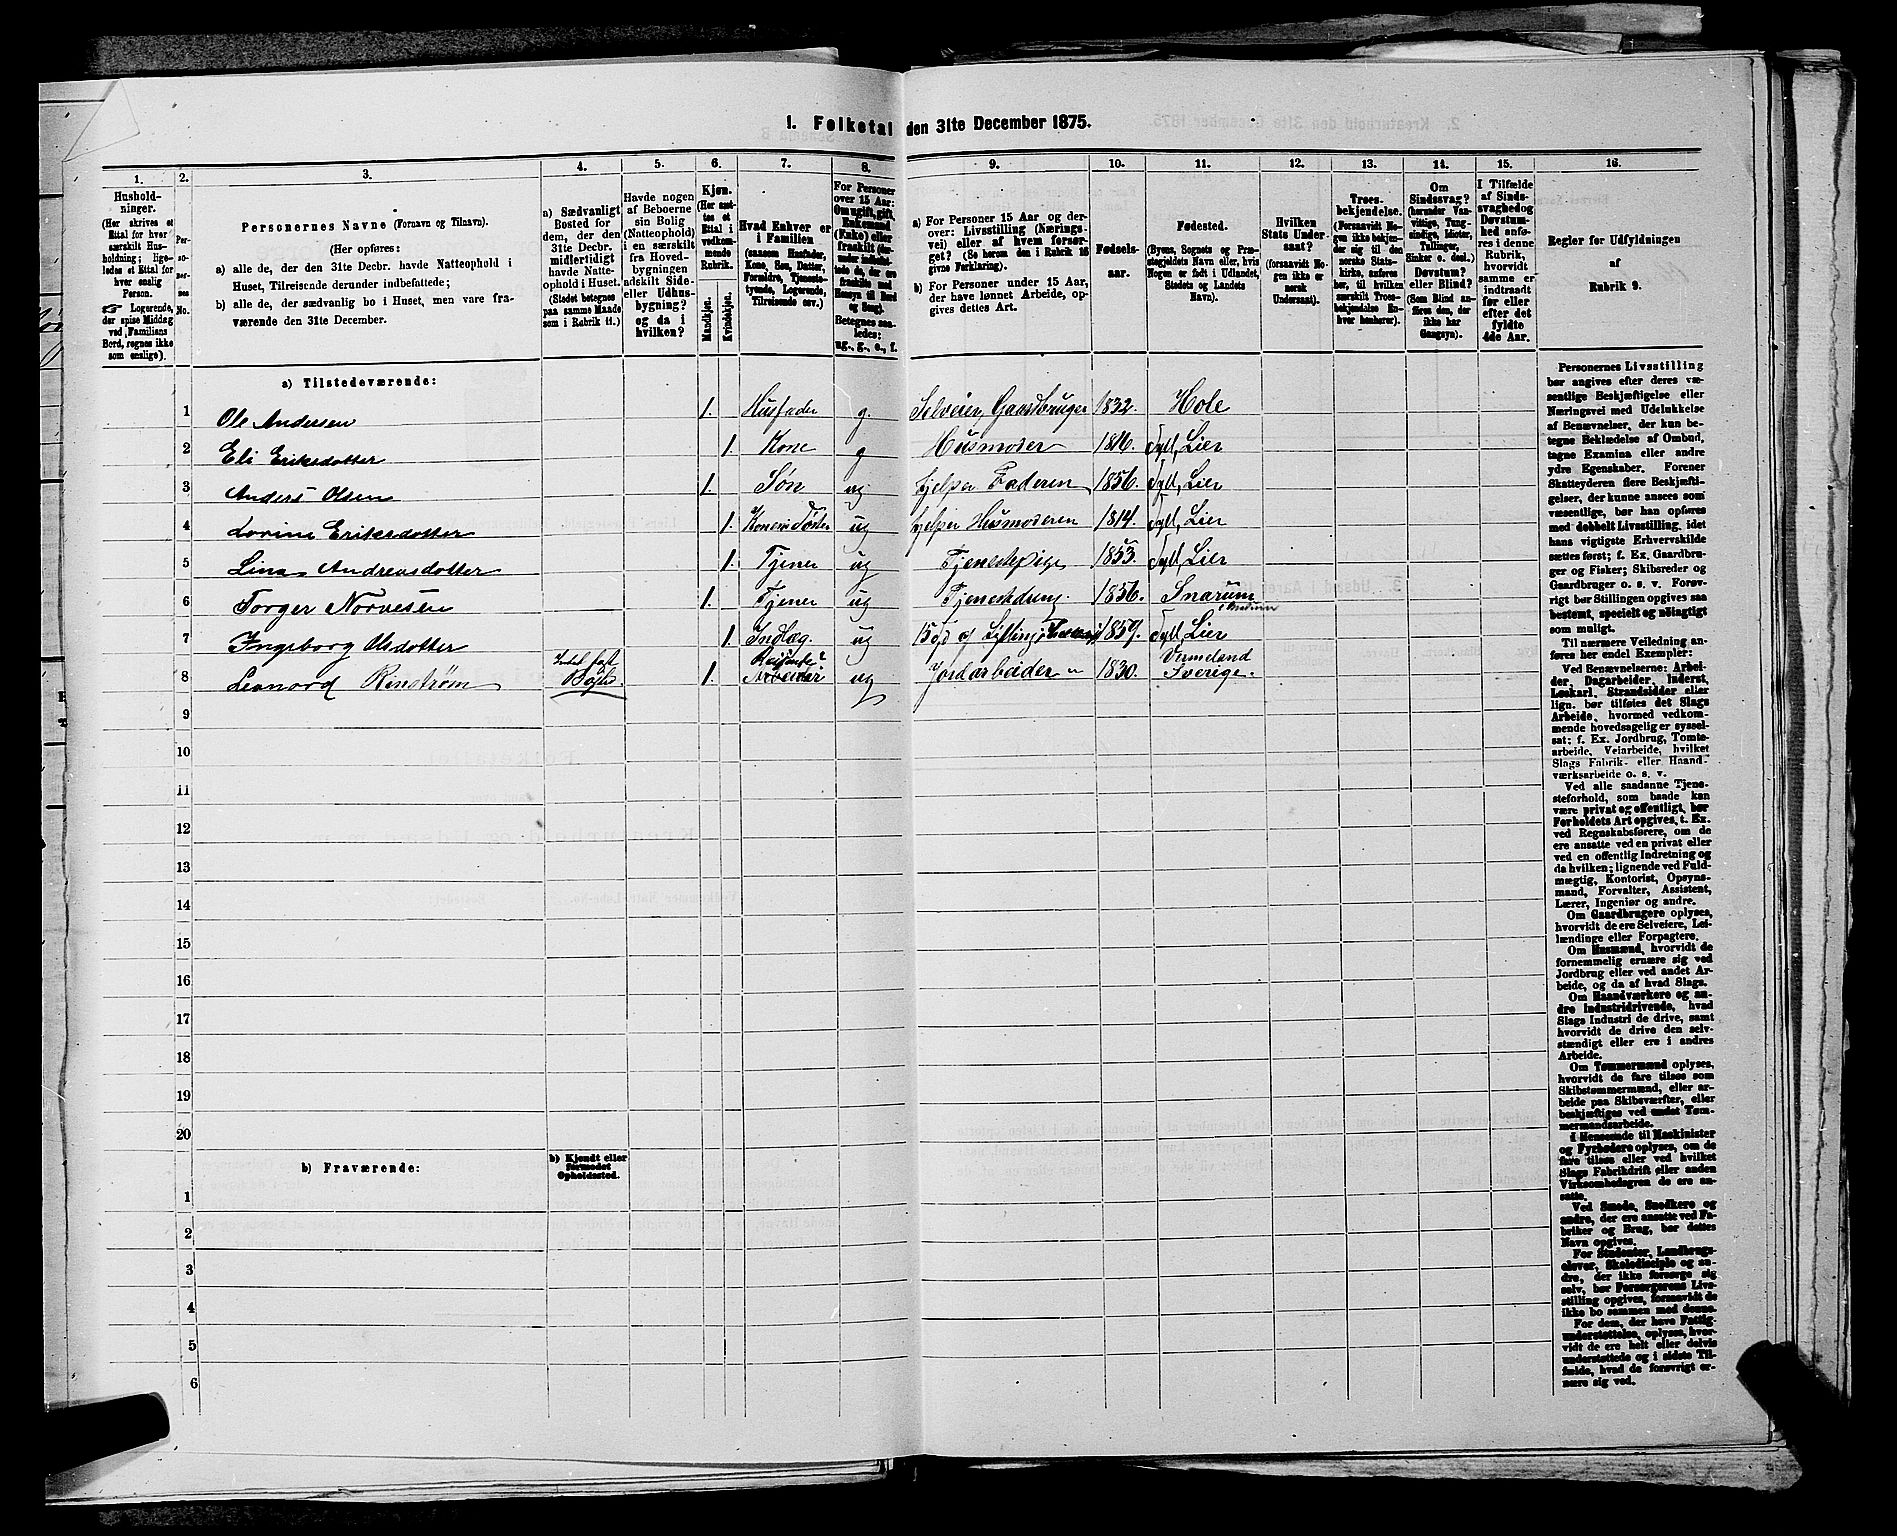 1. Folketal den 31te December 1875.
1.
2.
3.
4.
5.
6.
7.
8.
9.
10.
11.
12.
13.
14.
15.
16.
Hushold-
ninger.
(Her skrives et
Ettal for hver
særskilt Hus-
holdning; lige-
ledes et Ettal for
hver enslig
Person.
☞ Logerende,
der spise Middag
ved Familiens
Bord, regnes ikke
som enslige).
Per-
so-
ner-
nes
No.
Personernes Navne (Fornavn og Tilnavn).
(Her opføres:
a) alle de, der den 31te Decbr. havde Natteophold i
Huset, Tilreisende derunder indbefattede;
b) alle de, der sædvanlig bo i Huset, men vare fra-
værende den 31te December.
a) Sædvanligt
Bosted for
dem, der den
31te Decbr.
midlertidigt
havde Natte-
ophold i Huset.
(Stedet betegnes
paa samme Maade
som i Rubrik 11.)
Havde nogen
af Beboerne
sin Bolig
(Natteophold)
i en særskilt
fra Hoved-
bygningen
adskilt Side-
eller Udhus-
bygning?
og da i
hvilken?
Kjøn.
(Her sæt-
tes et
Ettal i
vedkom-
mende
Rubrik.
Mandkjøn.
Kvindekjøn.
Hvad Enhver er
i Familien
(saasom Husfader,
Kone, Søn, Datter,
Forældre, Tjeneste-
tyende, Logerende,
Tilreisende osv.)
For Personer
over 15 Aar:
Om ugift, gift,
Enkemand
(Enke) eller
fraskilt (her-
under indbefat-
tede de, der ere
fraskilte med
Hensyn til Bord
og Seng).
Betegnes saa-
ledes:
ug., g., e., f.
a) For Personer 15 Aar og der-
over: Livsstilling (Nærings-
vei) eller af hvem forsør-
get? (Se herom den i Rubrik 16
givne Forklaring).
b) For Personer under 15 Aar,
der have lønnet Arbeide, op-
gives dettes Art.
Fødsels-
aar.
Fødested.
(Byens, Sognets og Præ-
stegjeldets Navn eller, hvis
Nogen er født i Udlandet,
Stedets og Landets
Navn).
Hvilken
Stats Under-
saat?
(forsaavidt No-
gen ikke er
norsk
Undersaat).
Troes-
bekjendelse.
(Forsaavidt No-
gen ikke bekjen-
der sig til den
norske Stats-
kirke, anføres
her, til hvilken
særskilt Troes-
bekjendelse En-
hver henhører).
Om
Sindssvag?
(herunder Van-
vittige, Tung-
sindige, Idioter,
Tullinger,
Sinker o. desl.)
Døvstum?
eller Blind?
(Som Blind an-
føres den, der
ikke har
Gangsyn).
I Tilfælde
af Sinds-
svaghed og
Døvstum-
hed anfø-
res i denne
Rubrik,
hvorvidt
samme er
indtraadt
før eller
efter det
fyldte
4de Aar.
Regler for Udfyldningen
af
Rubrik 9.
a) Tilstedeværende:
1 Ole Andersen 1. Husfader g. Selveier, Gaardbruger 1832. Hole
2 Eli Eriksdotter 1. Kone g Husmoder 1816. Sylt, Lier
3 Anders Olsen 1. Søn ug. hjelper Faderen 1856. Sylt, Lier
4 Lovine Eriksdotter 1. Konens Søster ug hjelper Husmoderen 1814. Sylt, Lier
5 Lina Andreasdotter 1. Tjener ug Tjenestepige 1853. Sylt, Lier
6 Torger Norvesen 1. Tjener ug Tjenestedreng. 1856. Snarum i Modum
7 Ingeborg Olsdotter 1. Indlæg. ug 1859. Sylt, Lier
8 Leonard Rinstrøm Intet fast Bosted. 1. Reisende Arbeider ug Jordarbeider 1830. Vermeland Sverige.
9
10
11
12
13
14
15
16
17
18
19
20
b) Fraværende:
b) Kjendt eller
formodet
Opholdssted.
1
2
3
4
5
6
Personernes Livsstilling
bør angives efter deres væ-
sentlige Beskjæftigelse eller
Næringsvei med Udelukkelse
af Benævnelser, der kun be-
tegne Beklædelse af Ombud,
tagne Examina eller andre
ydre Egenskaber. Forener
Skatteyderen flere Beskjæfti-
gelser, der kunne ansees som
væsentlige, bør han opføres
med dobbelt Livsstilling, idet
hans vigtigste Erhvervskilde
sættes først; f. Ex. Gaardbru-
ger og Fisker; Skibsreder og
Gaardbruger o. s. v. Forøv-
rigt bør Stillingen opgives saa
bestemt, specielt og nøiagtigt
som muligt.
Til nærmere Veiledning an-
føres her endel Exempler:
Ved Benævnelserne: Arbei-
der, Dagarbeider, Inderst,
Løskarl, Strandsidder eller
lign. bør tilføies det Slags
Arbeide, hvormed vedkom-
mende hovedsagelig er syssel-
sat; f. Ex. Jordbrug, Tomte-
arbeide, Veiarbeide, hvilket
Slags Fabrik- eller Haand-
værksarbeide o. s. v.
Ved alle saadanne Tjene-
steforhold, som baade kan
være privat og offentligt, bør
Forholdets Art opgives, t. Ex.
ved Regnskabsførere, om de
ere ansatte ved en privat eller
ved en offentlig Indretning og
da hvilken; lignende ved Fuld-
mægtig, Kontorist, Opsyns-
mand, Forvalter, Assistent,
Lærer, Ingeniør og andre.
Om Gaardbrugere oplyses,
hvorvidt de ere Selveiere, Lei-
lændinge eller Forpagtere.
Om Husmænd, hvorvidt de
fornemmelig ernære sig ved
Jordbrug eller ved andet Ar-
beide, og da af hvad Slags.
Om Haandværkere og an-
dre Industridrivende, hvad
Slags Industri de drive, samt
hvorvidt de drive den selv-
stændigt eller ere i andres
Arbeide.
Om Tømmermænd oplyses,
hvorvidt de fare tilsøs som
Skibstømmermænd, eller ar-
beide paa Skibsværfter, eller
beskjæftiges ved andet Tøm-
mermandsarbeide.
I Henseende til Maskinister
og Fyrbødere oplyses, om de
fare tilsøs eller ved hvilket
Slags Fabrikdrift eller anden
Virksomhedsgren de ere an-
satte.
Ved Smede, Snedkere og
andre, der ere ansatte ved Fa-
briker og Brug, bør dettes
Navn opgives.
For Studenter, Landbrugs-
elever, Skoledisciple og an-
dre, der ikke forsørge sig
selv, bør Forsørgerens Livs-
stilling opgives, forsaavidt de
ikke bo sammen med denne.
For dem, der have Fattig-
understøttelse, oplyses, hvor-
vidt de ere helt eller delvis
understøttede og i sidste Til-
fælde, hvad de forøvrigt er-
nære sig ved.